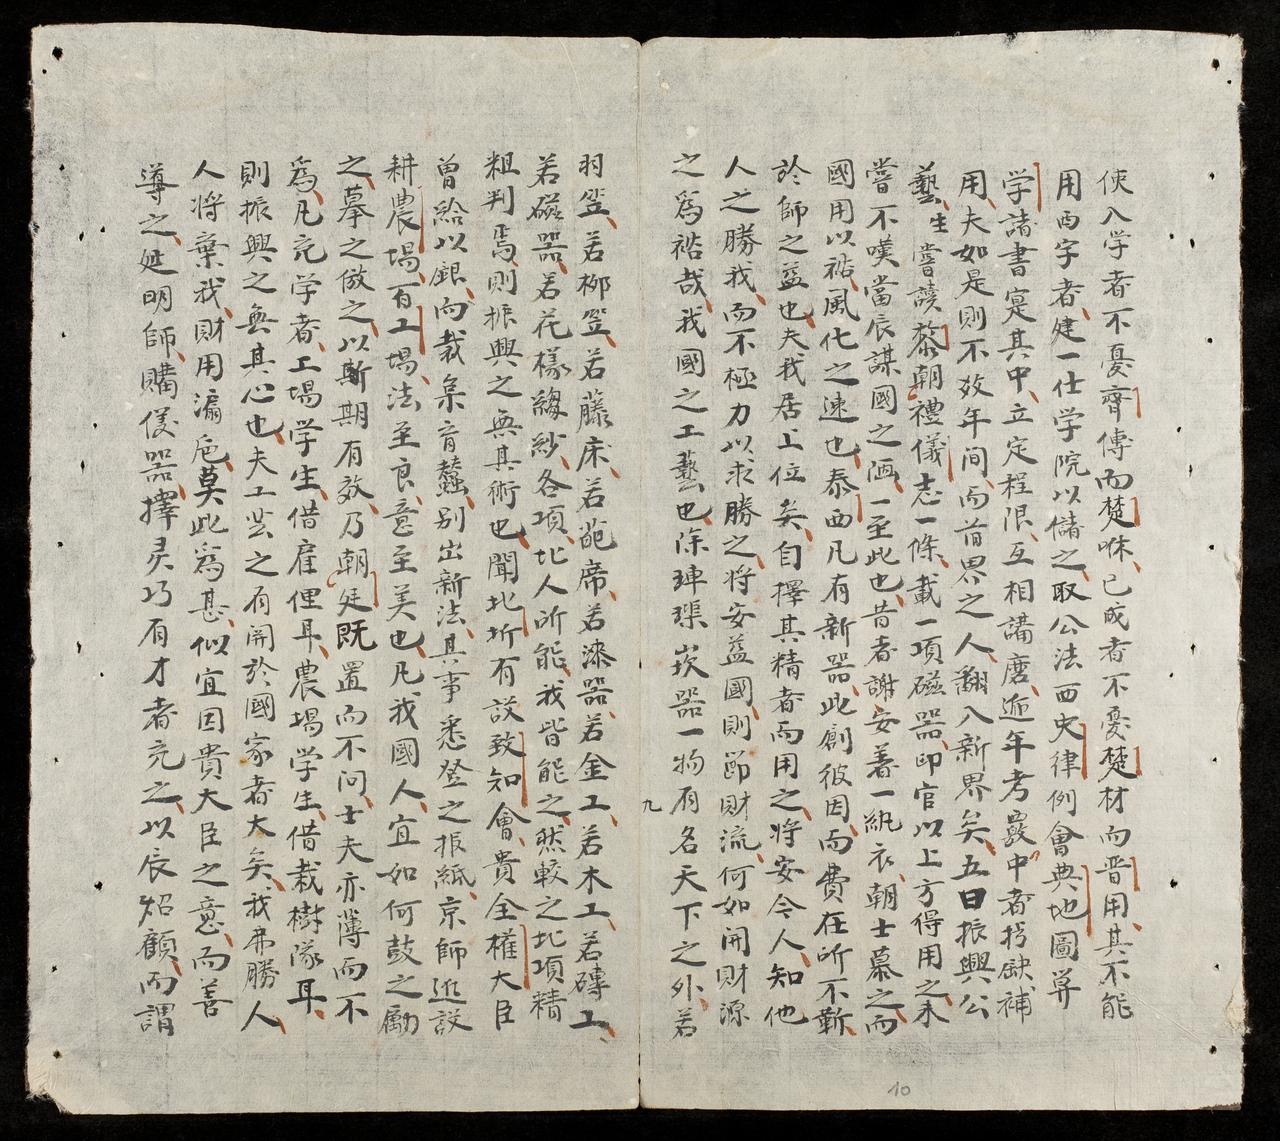 使入学者不憂齊傅而楚咻已成者不憂楚材而晉用其不能
用西字者建一仕学院以儲之取公法西史律例會典地圖算
学諸書寘其中立定程限互相講磨近年考覈中者捋缺補
用夫如是則不效年间而旧界之人翻入新界矣五曰振興公
藝生嘗讀黎朝禮儀志一條載一項磁器卽官以上方得用之未
嘗不嘆當辰謀國之陋一至此也昔者謝安着一紈衣朝士慕之而
國用以裕風化之速也泰西凡有新器此創彼因而費在所不靳
於師之益也夫我居上位矣自擇其精者而用之將安令人知他
人之勝我而不極力以求勝之將安益國則節財流何如開財源
之爲裕哉我國之工藝也除琫璖嵌器一物有名天下之外若
羽笠若柳笠若藤床若葩席若漆器若金工若木工若磚工
若磁器若花樣縐紗各項北人所能我皆能之然較之北項精
粗判焉則振興之無其術也聞北圻有設致知會貴全權大臣
曾給以銀而栽桑育蠶别出新法其事悉登之报紙京師近設
耕農場百工場法至良意至美也凡我國人宜如何鼓之勵
之摹之倣之以斯期有效乃朝廷既置而不问士夫亦薄而不
爲凡充学者工場学生借雇俚耳農場学生借栽樹隊耳
則振興之無其心也夫工芸之有関於國家者大矣我弗勝人
人將棄我財用漏卮莫此爲甚似宜因貴大臣之意而善
導之延明師購傢器擇灵巧有才者充之以辰炤顧而謂
九
10